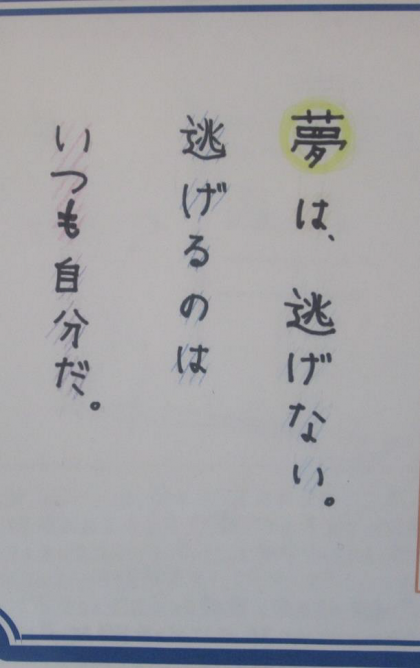 夢は、逃げない。
逃げるのは
いつも自分だ。